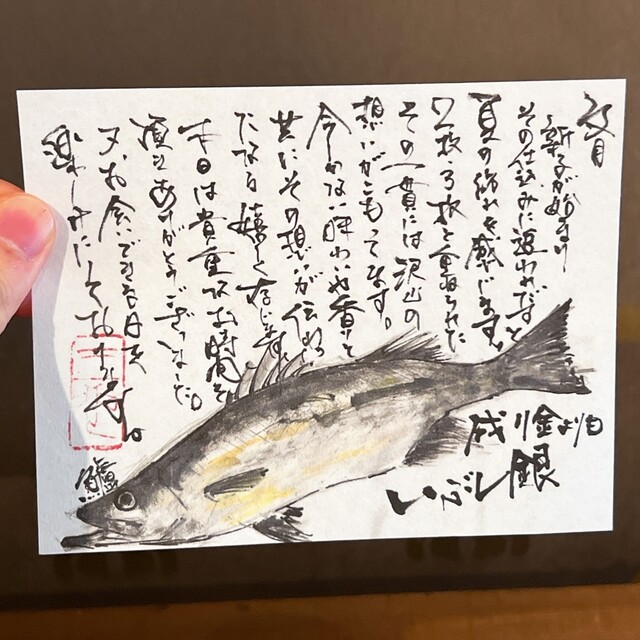 新子が始まり
その仕込みに追われだすと
夏の訪れを感じます。
2枚、3枚と重ねられた
その一貫には沢山の
想いがこもってます。
今しかない味わいや香りと
共にその想いが伝われば
嬉しく存じます。
本日は貴重なお時間を
頂きありがとうございました。
又、お会いできる日を
楽しみにしております。
鱸
成り金よりも
いぶし銀